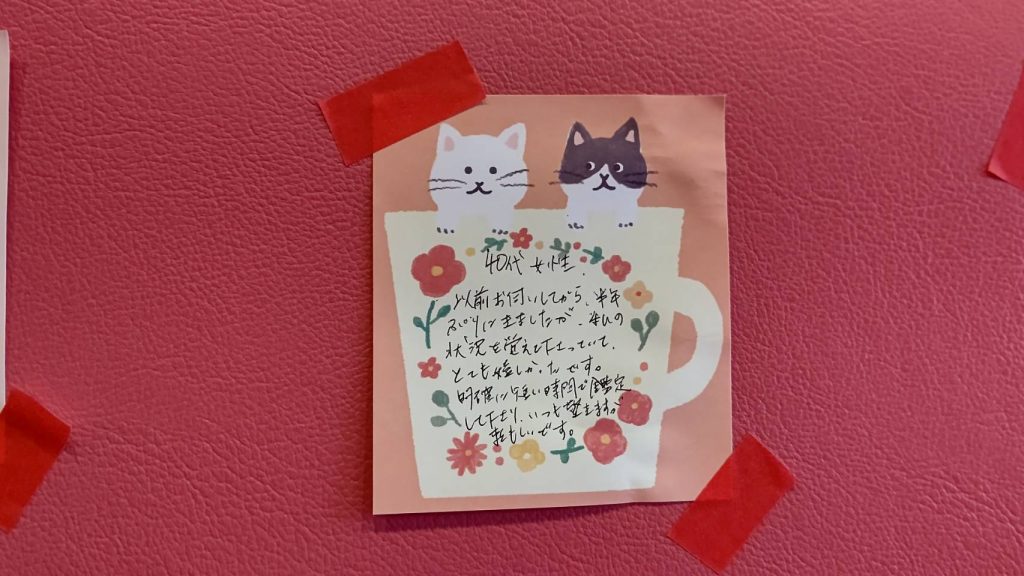 40代 女性.
以前お伺いしてから、半年
ぶりに来ましたが、私の
状況を覚えて下さっていて、
とても嬉しかったです。
明確に短い時間で鑑定
して下さり、いつも
頼もしいです。